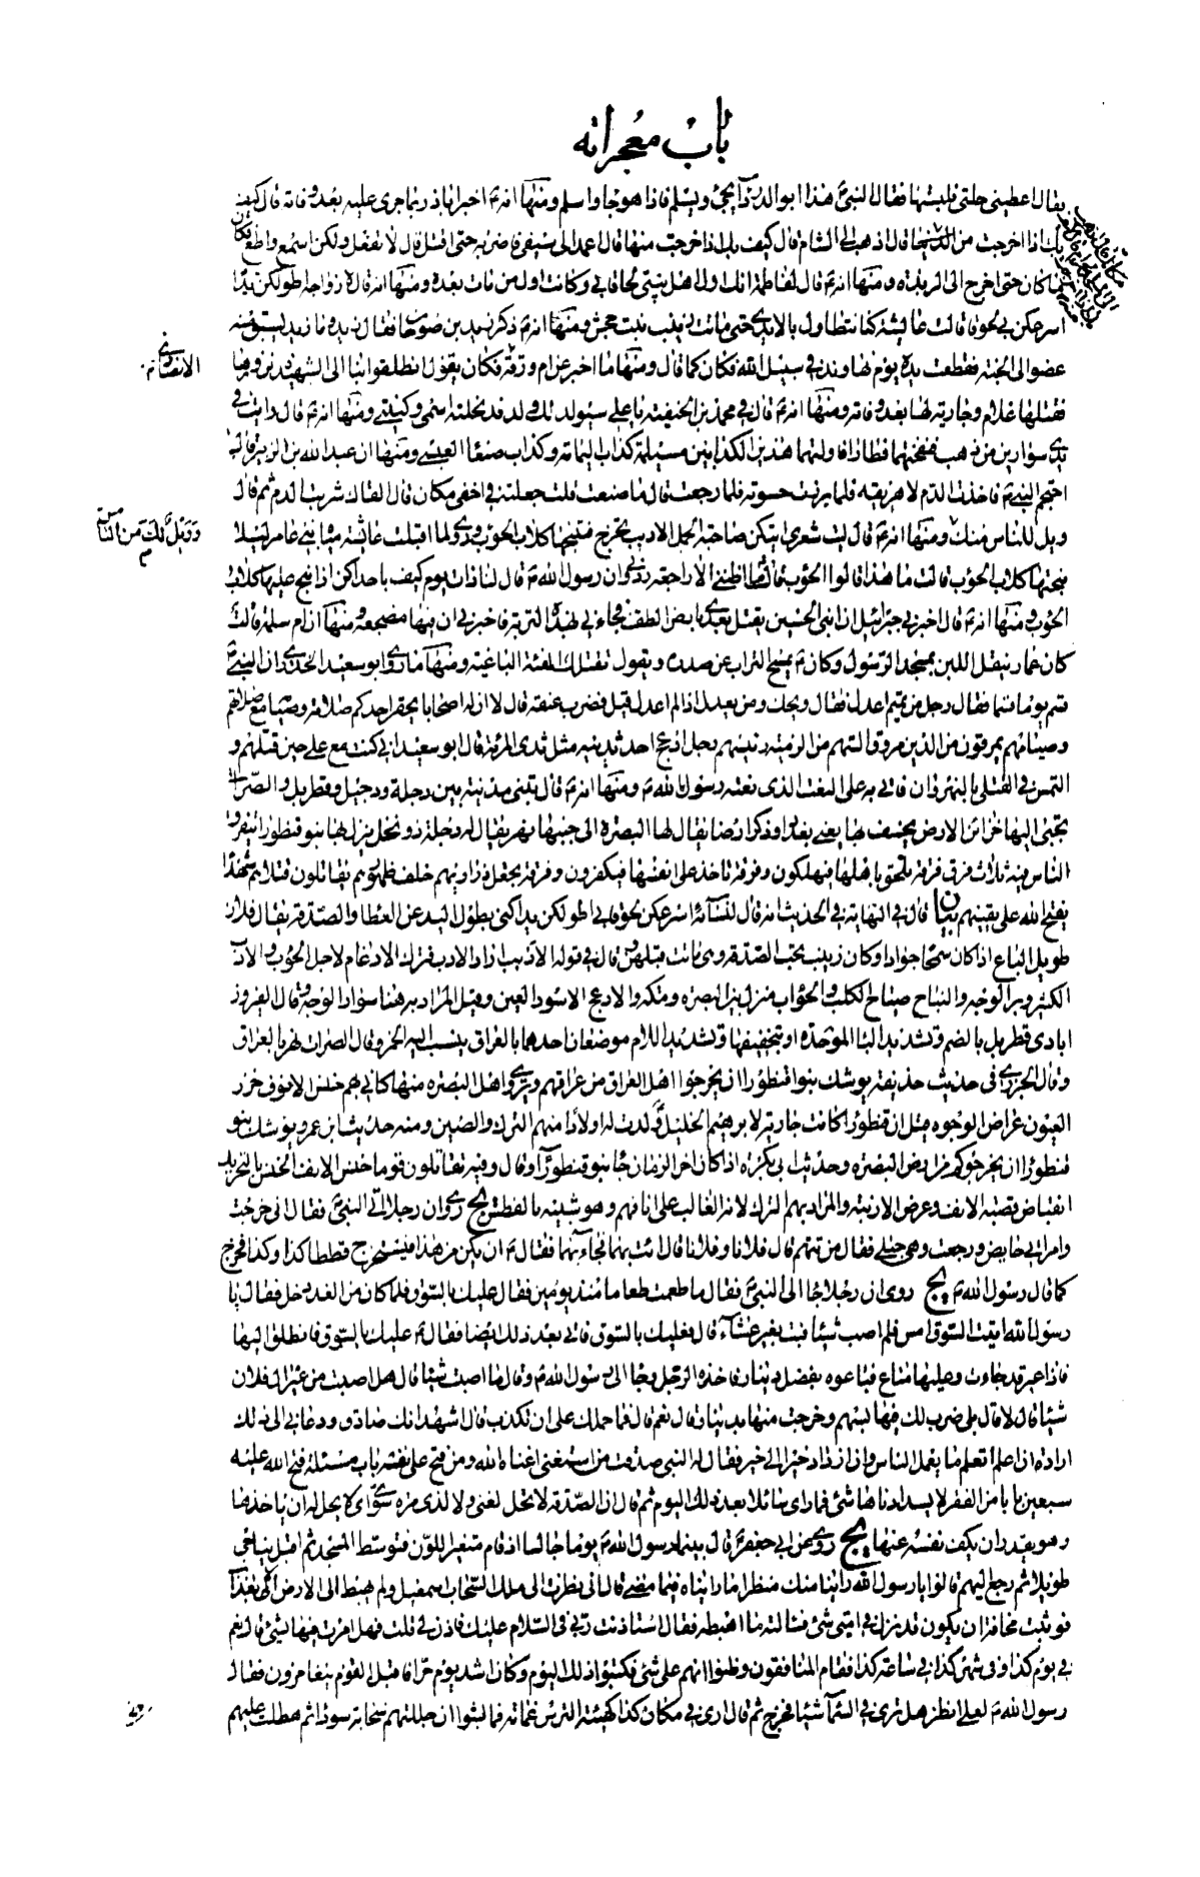 باب معجزاته
فقال اعطيني حلتي فلبسها فقال النبي ص هذا ابو الدرداء يجئ ويسلم فاذا هو جاء واسلم ومنها انه ص اخبر اباذر بما جرى عليه بعد وفاته قال كيف
بك اذا اخرجت من قال اذهب الى الشام قال كيف بك اذا خرجت منها قال اعمد الى سيفي فاضرب به حتى اقتل قال لا تفعل ولكن اسمع واطع فكان
ما كان حتى اخرج الى الربذة ومنها انه ص قال لفاطمة انك اول اهل بيتي لحاقا بي وكانت اول من مات بعده ومنها انه قال لازواجه اطولكن يدا
اسرعكن بي لحوقا قالت عائشة كنا نتطاول بالايدي حتى ماتت زينب بنت جحش ومنها انه ص ذكر زيد بن صوحان فقال زيد وما زيد يسبق منه
عضو الى الجنة فقطعت يده يوم نهاوند في سبيل الله فكان كما قال ومنها ما اخبر عن ام ورقة فكان يقول انطلقوا بنا الى الشهيدة نزورها
فقتلها غلام وجارية لها بعد وفاته ومنها انه ص قال في محمد بن الحنفية يا علي سيولد لك ولد قد نحلته اسمي وكنيتي ومنها انه ص قال رايت في
يدي سوارين من ذهب فنفختهما فطارا فاولتهما هذين الكذابين مسيلمة كذاب اليمامة وكذاب صنعا العنسي ومنها ان عبد الله بن الزبير قال
احتجم النبي ص فاخذت الدم لاهريقه فلما برزت حسوته فلما رجعت قال ما صنعت قلت جعلته في اخفى مكان قال الفاك شربت الدم ثم قال
ويل للناس منك ومنها انه ص قال ليت شعري ايتكن صاحبة الجمل الادبب تخرج فتنبحها كلاب الحوب وروي لما اقبلت عائشة مياه بني عامر ليلا
نبحتها كلاب الحوب قالت ما هذا قالوا الحوب قالت ما اظنني الا راجعة ردوني ان رسول الله ص قال لنا ذات يوم كيف باحداكن اذا نبح عليها كلاب
الحوب ومنها انه ص قال اخبرني جبرئيل ان ابني الحسين يقتل بعدي بارض الطف فجاءني بهذه التربة فاخبرني ان فيها مضجعه ومنها ان ام سلمة قالت
كان عمار ينقل اللبن بمسجد الرسول وكان ص يمسح التراب عن صدره ويقول تقتلك الفئة الباغية ومنها ما روى ابو سعيد الخدري ان النبي ص
قسم يوما قسما فقال رجل من تميم اعدل فقال ويحك ومن يعدل اذا لم اعدل قيل نضرب عنقه قال لا ان له اصحابا يحقر احدكم صلاته وصيامه مع صلاتهم
وصيامهم يمرقون من الدين مروق السهم من الرمية رئيسهم رجل ادعج احد ثدييه مثل ثدي المرئة قال ابو سعيد اني كنت مع علي حين قتلهم و
التمس في القتلى بالنهروان فاتي به على النعت الذي نعته رسول الله ص ومنها انه ص قال تبنى مدينة بين دجلة ودجيل وقطربل والصراة
تجبى اليها خزائن الارض يخسف بها يعني بغداد وذكر ارضا يقال لها البصرة الى جنبها نهر يقال له دجلة ذو نخل ينزل بها بنو قنطورا يتفرق
الناس فيه ثلاث فرق فرقة تلحق باهلها فيهلكون وفرقة تاخذ على انفسها فيكفرون وفرقة تجعل ذراريهم خلف ظهورهم يقاتلون قتلاهم شهداء
يفتح الله على بقيتهم بيان قال في النهاية في الحديث انه قال لنسائه اسرعكن لحوقا بي اطولكن يدا كنى بطول اليد عن العطا والصدقة يقال فلان
طويل الباع اذا كان سمحا جوادا وكان زينب تحب الصدقة وهي ماتت قبلهن وقال في قوله الادبب اراد الادب فترك الادغام لاجل الحوب والادب
الكثير وبر الوجه والنباح صياح الكلب والحواب منزل بين البصرة ومكة والادعج الاسود العين وقيل المراد به هنا سواد الوجه وقال الفيروز
ابادى قطربل بالضم وتشديد الباء الموحدة او بتخفيفها وتشديد اللام موضعان احدهما بالعراق ينسب اليه الخمر وقال الصراة نهر بالعراق
وقال الجزري في حديث حذيفة يوشك بنو قنطورا ان يخرجوا اهل العراق من عراقهم ويروى اهل البصرة منها كاني بهم خنس الانوف خزر
العيون عراض الوجوه قيل ان قنطورا كانت جارية لابرهيم الخليل ولدت له اولادا منهم الترك والصين ومنه حديث ابن عمرو يوشك بنو
قنطورا ان يخرجوكم من ارض البصرة وحديث ابي بكرة اذا كان اخر الزمان جا بنو قنطورا وقال وفيه تقاتلون قوما خنس الانف الخنس بالتحريك
انقباض قصبة الانف وعرض الارنبة والمراد بهم الترك لانه الغالب على انافهم وهو شبيه بالفطس يج روي ان رجلا اتى النبي ص فقال اني خرجت
وامراتي حايض ورجعت وهي حبلى فقال من تتهم قال فلانا وفلانا قال ائت بهما فجاء بهما فقال ص ان يكن من هذا فسيخرج قططا كذا وكذا فخرج
كما قال رسول الله ص يج روي ان رجلا جا الى النبي ص فقال ما طعمت طعاما منذ يومين فقال عليك بالسوق فلما كان من الغد دخل فقال يا
رسول الله اتيت السوق امس فلم اصب شيئا فبت بغير عشاء قال فعليك بالسوق فاتى بعد ذلك ايضا فقال ص عليك بالسوق فانطلق اليها
فاذا عير قد جاءت وعليها متاع فباعوه بفضل دينار فاخذه الرجل وجا الى رسول الله ص وقال ما اصبت شيئا قال هل اصبت من عير ال فلان
شيئا قال لا قال بلى ضرب لك فيها بسهم وخرجت منها بدينار قال نعم قال فما حملك على ان تكذب قال اشهد انك صادق ودعاني الى ذلك
ارادة ان اعلم اتعلم ما يعمل الناس وان ازداد خيرا الى خير فقال له النبي صدقت من استغنى اغناه الله ومن فتح على نفسه باب مسئلة فتح الله عليه
سبعين بابا من الفقر لا يسد ادناها شئ فما رأى سائلا بعد ذلك اليوم ثم قال ان الصدقة لا تحل لغني ولا لذي مرة سوي اي لا يحل له ان ياخذها
وهو يقدر ان يكف نفسه عنها يج روي عن ابي جعفر ع قال بينما رسول الله ص يوما جالسا اذ قام متغير اللون فتوسط المسجد ثم اقبل يناجي
طويلا ثم رجع اليهم قالوا يا رسول الله راينا منك منظرا ما رايناه فيما مضى قال اني نظرت الى ملك السحاب اسمعيل ولم يهبط الى الارض الا بعذاب
فوثبت مخافة ان يكون قد نزل في امتي شئ فسالته ما اهبطه فقال استاذنت ربي في السلام عليك فاذن لي قلت فهل امرت فيها بشئ قال نعم
في يوم كذا وفي شهر كذا في ساعة كذا فقام المنافقون وظنوا انهم على شئ فكتبوا ذلك اليوم وكان اشد يوم حرا فاقبل القوم يتغامزون فقال
رسول الله ص لعلي انظر هل ترى في السماء شيئا فخرج ثم قال ارى في مكان كذا كهيئة الترس غمامة فما لبثوا ان جللتهم سحابة سوداء ثم هطلت عليهم
الانصارية
وويل لك من الناس